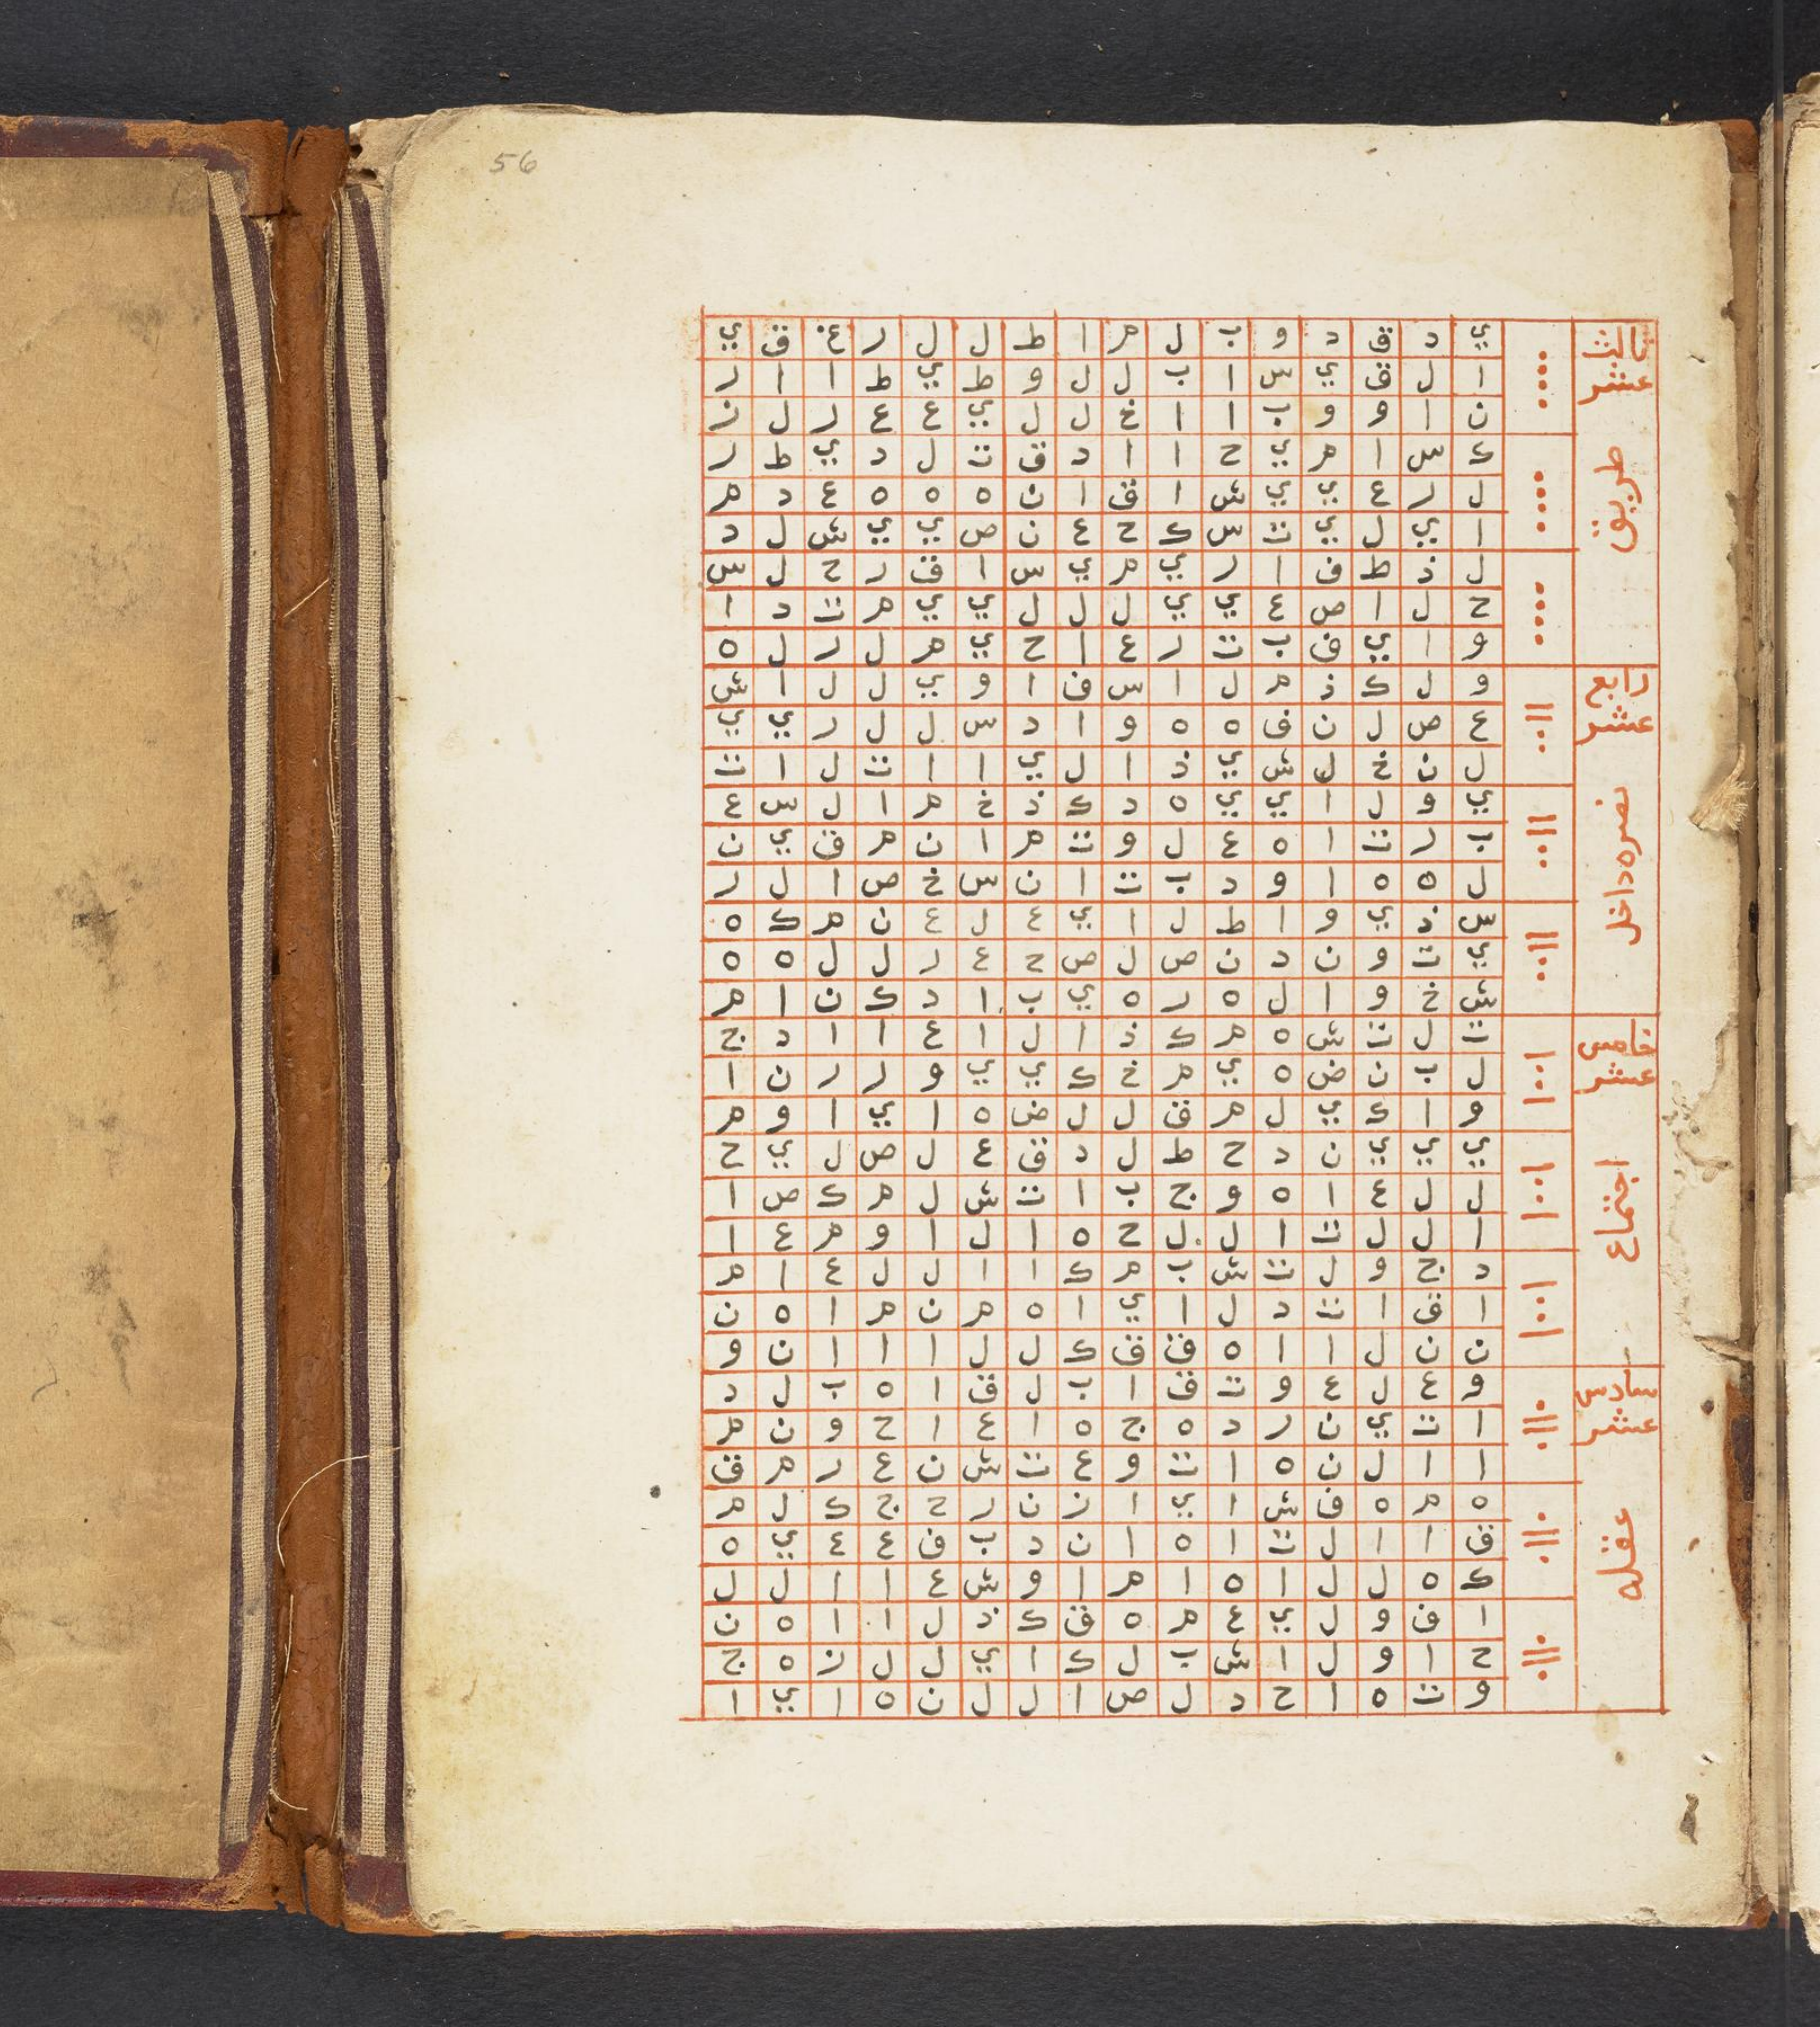 56
ثالث عشر
طريق
ي د ق د و ب ل م ا ط ل ل ر غ ق ي
ا ل ق ي س ا ب ل ل و ط ي ط ا ا ر
ن ا و و ب ا ا خ ل ل ي ع ع ر ل ز
ك س ا م ي ح ا ا د ق ت ل د ي ط ر
ل ر ع ي ي ش ا ق ا ن ه ه ه ع د م
ا ي ل ي ت س ك ح ع ن ص ي ي ش ل د
ل ذ ط ف ا ر ي م ي س ا ق ر ح ل س
ح ل ا ص ع ي ي ل ل ل ي ي م ت د ا
و ا ي ق ب ت ر ع ا ح ي م ل ر ل ه
رابع عشر
نصره داخل
و ل ك ذ م ل ا س ف ا و ي ل ل ا ش
ع ص ل ن ف ه ه و ا د س ل ل ر ي ي
ل ن خ ل ش ي ذ ا ل ي ا ا ت ل ا ت
ي و ل ا ي ي ه د ك ذ خ م ا ل س ع
ب ر ت ا ه ع ل و ت م ا ن م ق ي ن
ل ه ه ا و د ب ت ا ن س خ ص ا ل ر
س ذ ي و ا ط ل ا ي ع ل ع ن م ك ه
ي ت و ن د ن ص ل ص ح ع ر ل ل ه ه
ش خ و ا ل ه ر ه ي ب ا د ك ن ا م
خامس عشر
اجتماع
ت ل ت ش ه م ك ذ ا ل ا ع ا ا د ج
ل ب ن ض ه ي م خ ك ي ي و ر ر ن ا
و ا ك ي ل م ق ل ل ض ه ا ي ا و م
ي ي ي ن د ح ط ل د ق ع ل ص ل ي ح
ل ل ع ا ه و ج ب ا ت ش ل م ك ص ا
ا ل ل ت ا ل ل ح ه ا ل ا و م ع ا
د ج و ل ت ش ب م ك ا ا ل ل ع ا م
ا ق ا ت د ل ا ي ا ه م ن م ا ه ن
ن ن ل ا ا ه ق ق ك ل ل ا ا ا ن و
سادس عشر
عقله
و ع ل ع و ت ق ا ب ل ق ا ه ب ل د
ا ت ي ن ر د ه ج ه ا ع ا ح و ن م
ا ا ل ن ه ا ت و ع ت ش ن ع ر م ق
ه م ه ف ش ا ي ا ن ن ر ح ج ك ل م
ق ا ا ل ت ا ه ا ن د ب ف ع ع ي ه
ك ه ل ل ا ه ا م ا و ش ع ا ا ل ل
ا ف و ل ي ع م ه ق ك ذ ل ا ا ه ن
ح ا و ل ا ش ب ل ك ا ي ل ل ن ه ج
و ت ه ا ح د ل ص ا ل ل ن ه ا ي ا